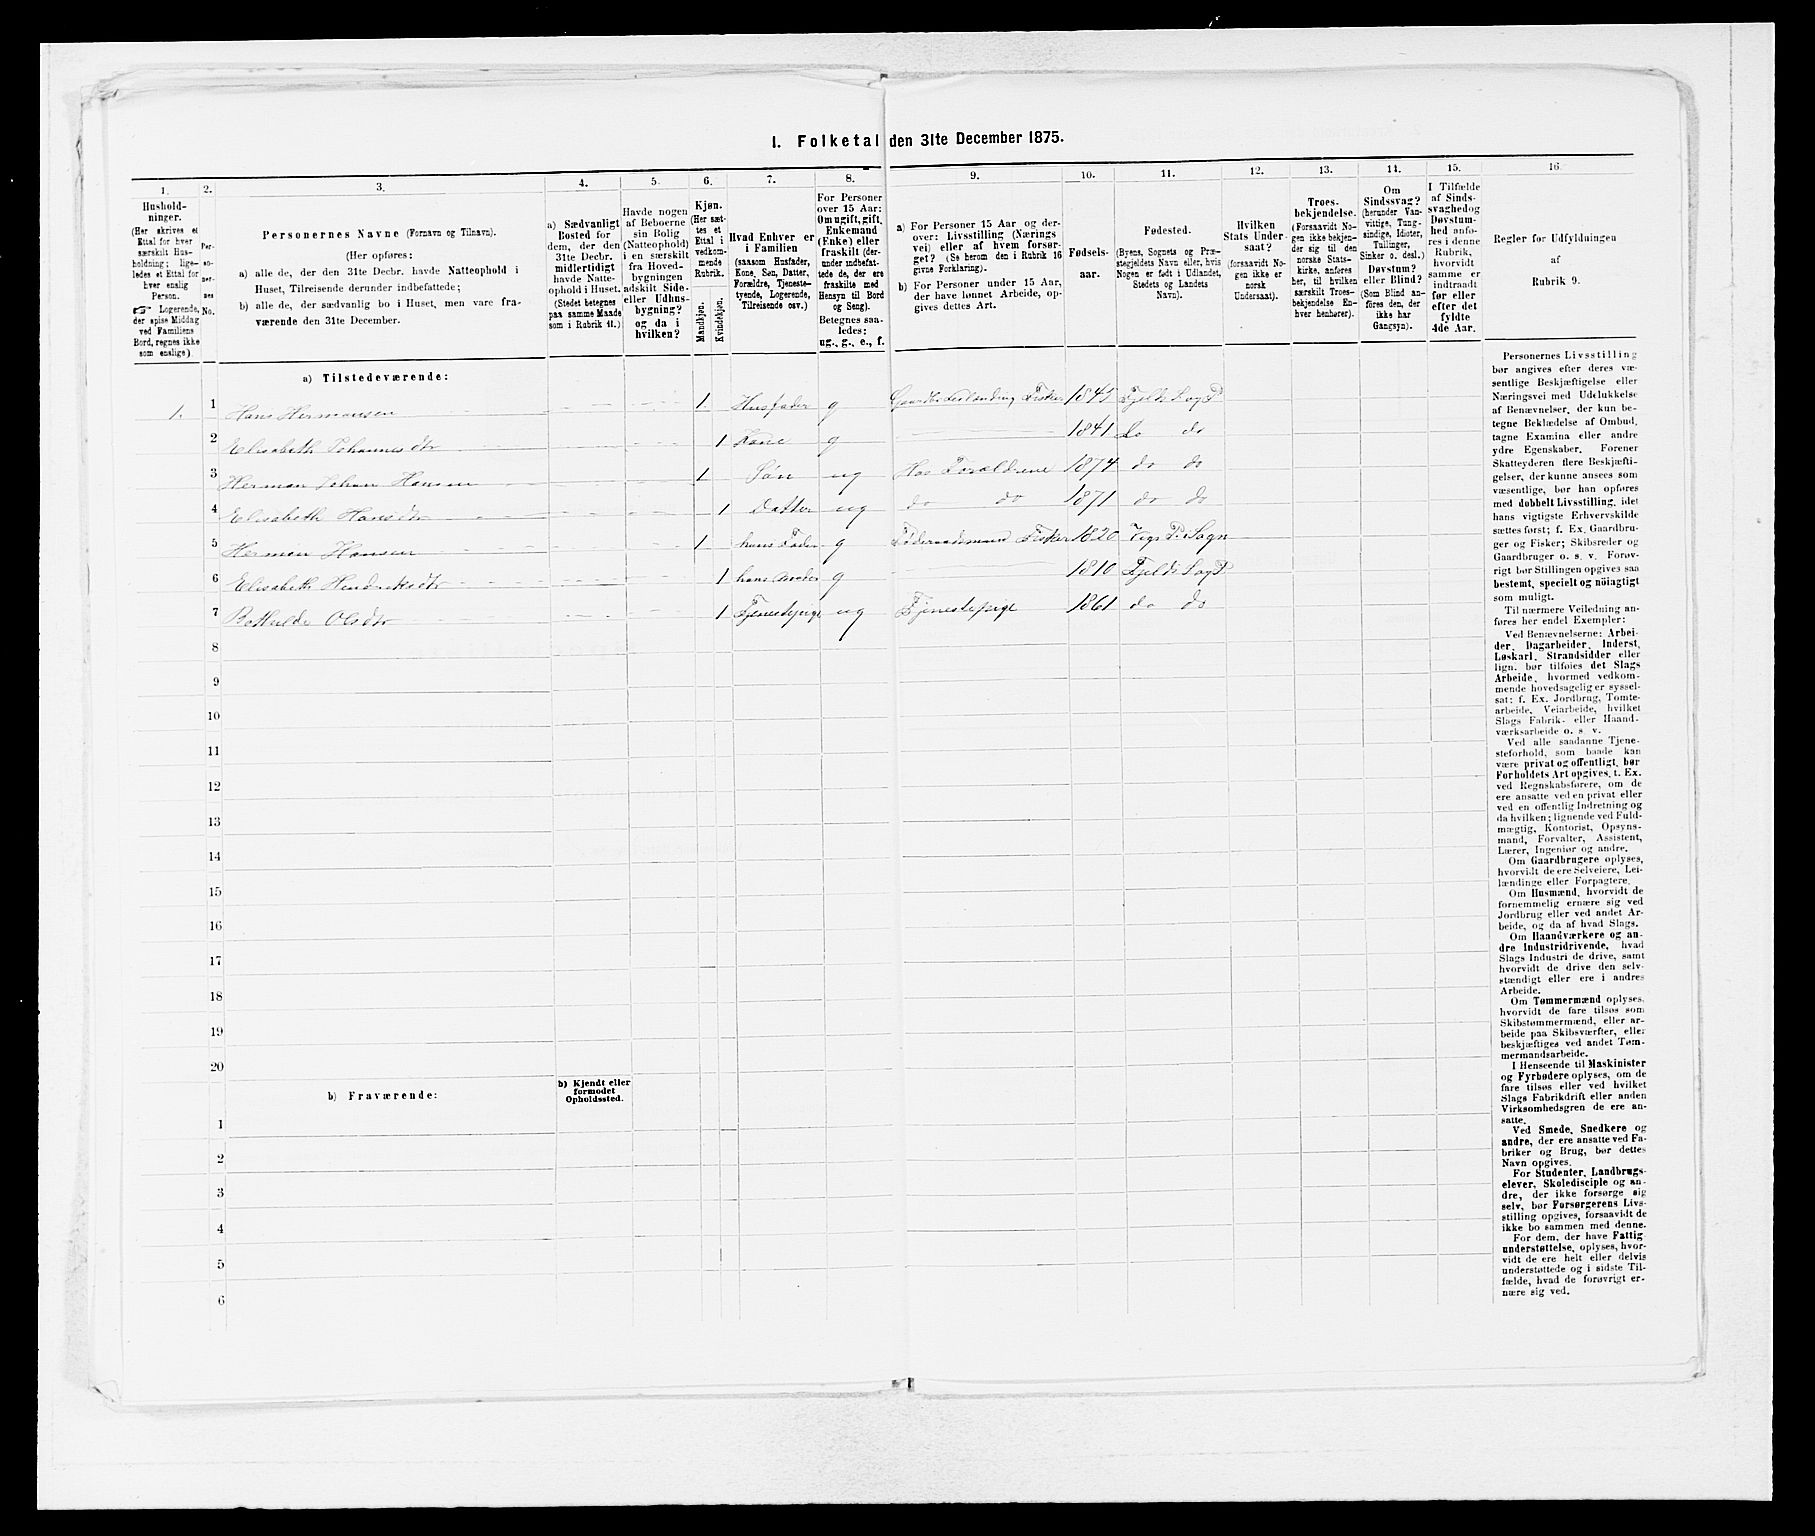 I. Folketal den 31te December 1875.
1. 2. 3. 4. 5. 6. 7. 8. 9. 10. 11. 12. 13. 14. 15. 16.
Hushold-
ninger.
(Her skrives et
Ettal for hver
særskilt Hus-
holdning; lige-
ledes et Ettal for
hver enslig
Person.
☞ Logerende,
der spise Middag
ved Familiens
Bord, regnes ikke
som enslige).
Per-
so-
ner-
nes
No.
Personernes Navne (Fornavn og Tilnavn).
(Her opføres:
a) alle de, der den 31te Decbr. havde Natteophold i
Huset, Tilreisende derunder indbefattede;
b) alle de, der sædvanlig bo i Huset, men vare fra-
værende den 31te December.
a) Sædvanligt
Bosted for
dem, der den
31te Decbr.
midlertidigt
havde Natte-
ophold i Huset.
(Stedet betegnes
paa samme Maade
som i Rubrik 11.)
Havde nogen
af Beboerne
sin Bolig
(Natteophold)
i en særskilt
fra Hoved-
bygningen
adskilt Side-
eller Udhus-
bygning?
og da i
hvilken?
Kjøn.
(Her sæt-
tes et
Ettal i
vedkom-
mende
Rubrik.
Mandkjøn.
Kvindekjøn.
Hvad Enhver er
i Familien
(saasom Husfader,
Kone, Søn, Datter,
Forældre, Tjeneste-
tyende, Logerende,
Tilreisende osv.)
For Personer
over 15 Aar:
Om ugift, gift,
Enkemand
(Enke) eller
fraskilt (der-
under indbefat-
tede de, der ere
fraskilte med
Hensyn til Bord
og Seng).
Betegnes saa-
ledes:
ug., g., e., f.
a) For Personer 15 Aar og der-
over: Livsstilling (Nærings
vei) eller af hvem forsør-
get? (Se herom den i Rubrik 16
givne Forklaring).
b) For Personer under 15 Aar,
der have lønnet Arbeide, op-
gives dettes Art.
Fødsels-
aar.
Fødested.
(Byens, Sognets og Præ-
stegjeldets Navn eller, hvis
Nogen er født i Udlandet,
Stedets og Landets
Navn).
Hvilken
Stats Under-
saat?
(forsaavidt No-
gen ikke er
norsk
Undersaat).
Troes-
bekjendelse.
(Forsaavidt No-
gen ikke bekjen-
der sig til den
norske Stats-
kirke, anføres
her, til hvilken
særskilt Troes-
bekjendelse En-
hver henhører).
Om
Sindssvag?
(herunder Van-
vittige, Tung-
sindige, Idioter,
Tullinger,
Sinker o. desl.)
Døvstum?
eller Blind?
(Som Blind an-
føres den, der
ikke har
Gangsyn).
I Tilfælde
af Sinds-
svaghed og
Døvstum-
hed anfø-
res i denne
Rubrik,
hvorvidt
samme er
indtraadt
før eller
efter det
fyldte
4de Aar.
Regler for Udfyldningen
af
Rubrik 9.
a) Tilstedeværende:
1. 1 Hans Hermansen 1 Husfader g Fisker 1845 Fjeld S og P
2 Elisabeth Johannesdtr 1 Kone g 1841 do do
3 Herman Johan Hansen 1 Søn ug Hos Forældrene 1874 do do
4 Elisabeth Hansdtr 1 Datter ug do do 1871 do do
5 Herman Hansen 1 hans Fader g Føderaadsmand Fisker 1820 P. Sogn
6 Elisabeth Hendriksdtr 1 hans Moder g 1810 Fjeld S og P
7 Olsdtr 1 Tjenestepige ug Tjenestepige 1861 do do
8
9
10
11
12
13
14
15
16
17
18
19
20
b) Fraværende:
b) Kjendt eller
formodet
Opholdssted.
1
2
3
4
5
6
Personernes Livsstilling
bør angives efter deres væ-
sentlige Beskjæftigelse eller
Næringsvei med Udelukkelse
af Benævnelser, der kun be-
tegne Beklædelse af Ombud,
tagne Examina eller andre
ydre Egenskaber. Forener
Skatteyderen flere Beskjæfti-
gelser, der kunne ansees som
væsentlige, bør han opføres
med dobbelt Livsstilling, idet
hans vigtigste Erhvervskilde
sættes først; f. Ex. Gaardbru-
ger og Fisker; Skibsreder og
Gaardbruger o. s. v. Forøv-
rigt bør Stillingen opgives saa
bestemt, specielt og nöiagtigt
som muligt.
Til nærmere Veiledning an-
føres her endel Exempler:
Ved Benævnelserne: Arbei-
der, Dagarbeider, Inderst,
Løskarl, Strandsidder eller
lign. bør tilføies det Slags
Arbeide, hvormed vedkom-
mende hovedsagelig er syssel-
sat; f. Ex. Jordbrug, Tomte-
arbeide, Veiarbeide, hvilket
Slags Fabrik- eller Haand-
værksarbeide o. s. v.
Ved alle saadanne Tjene-
steforhold, som baade kan
være privat og offentligt, bør
Forholdets Art opgives, t. Ex.
ved Regnskabsførere, om de
ere ansatte ved en privat eller
ved en offentlig Indretning og
da hvilken; lignende ved Fuld-
mægtig, Kontorist, Opsyns-
mand, Forvalter, Assistent,
Lærer, Ingeniør og andre.
Om Gaardbrugere oplyses,
hvorvidt de ere Selveiere, Lei-
lændinge eller Forpagtere.
Om Husmænd, hvorvidt de
fornemmelig ernære sig ved
Jordbrug eller ved andet Ar-
beide, og da af hvad Slags.
Om Haandværkere og an-
dre Industridrivende, hvad
Slags Industri de drive, samt
hvorvidt de drive den selv-
stændigt eller ere i andres
Arbeide.
Om Tømmermænd oplyses,
hvorvidt de fare tilsøs som
Skibstømmermænd, eller ar-
beide paa Skibsværfter, eller
beskjæftiges ved andet Tøm-
mermandsarbeide.
I Henseende til Maskinister
og Fyrbødere oplyses, om de
fare tilsøs eller ved hvilket
Slags Fabrikdrift eller anden
Virksomhedsgren de ere an-
satte.
Ved Smede, Snedkere og
andre, der ere ansatte ved Fa-
briker og Brug, bør dettes
Navn opgives.
For Studenter, Landbrugs-
elever, Skoledisciple og an-
dre, der ikke forsørge sig
selv, bør Forsørgerens Livs-
stilling opgives, forsaavidt de
ikke bo sammen med denne.
For dem, der have Fattig-
understøttelse, oplyses, hvor-
vidt de ere helt eller delvis
understøttede og i sidste Til-
fælde, hvad de forøvrigt er-
nære sig ved.